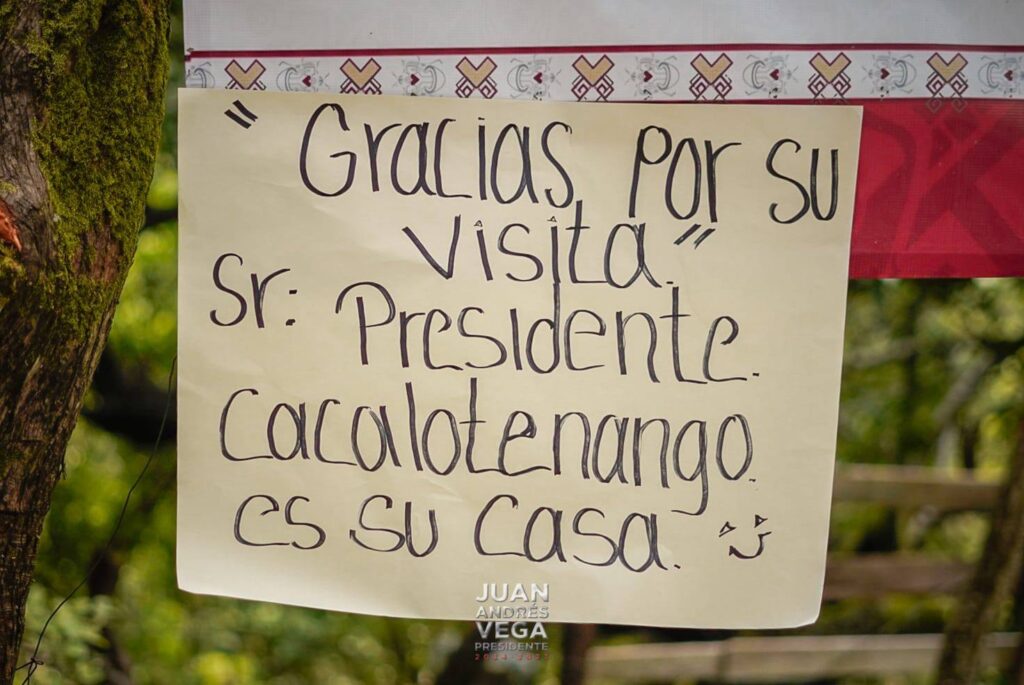 "Gracias por su
visita."
Sr: Presidente.
Cacalotenango.
es su casa.
JUAN
ANDRÉS
VEGA
PRESIDENTE